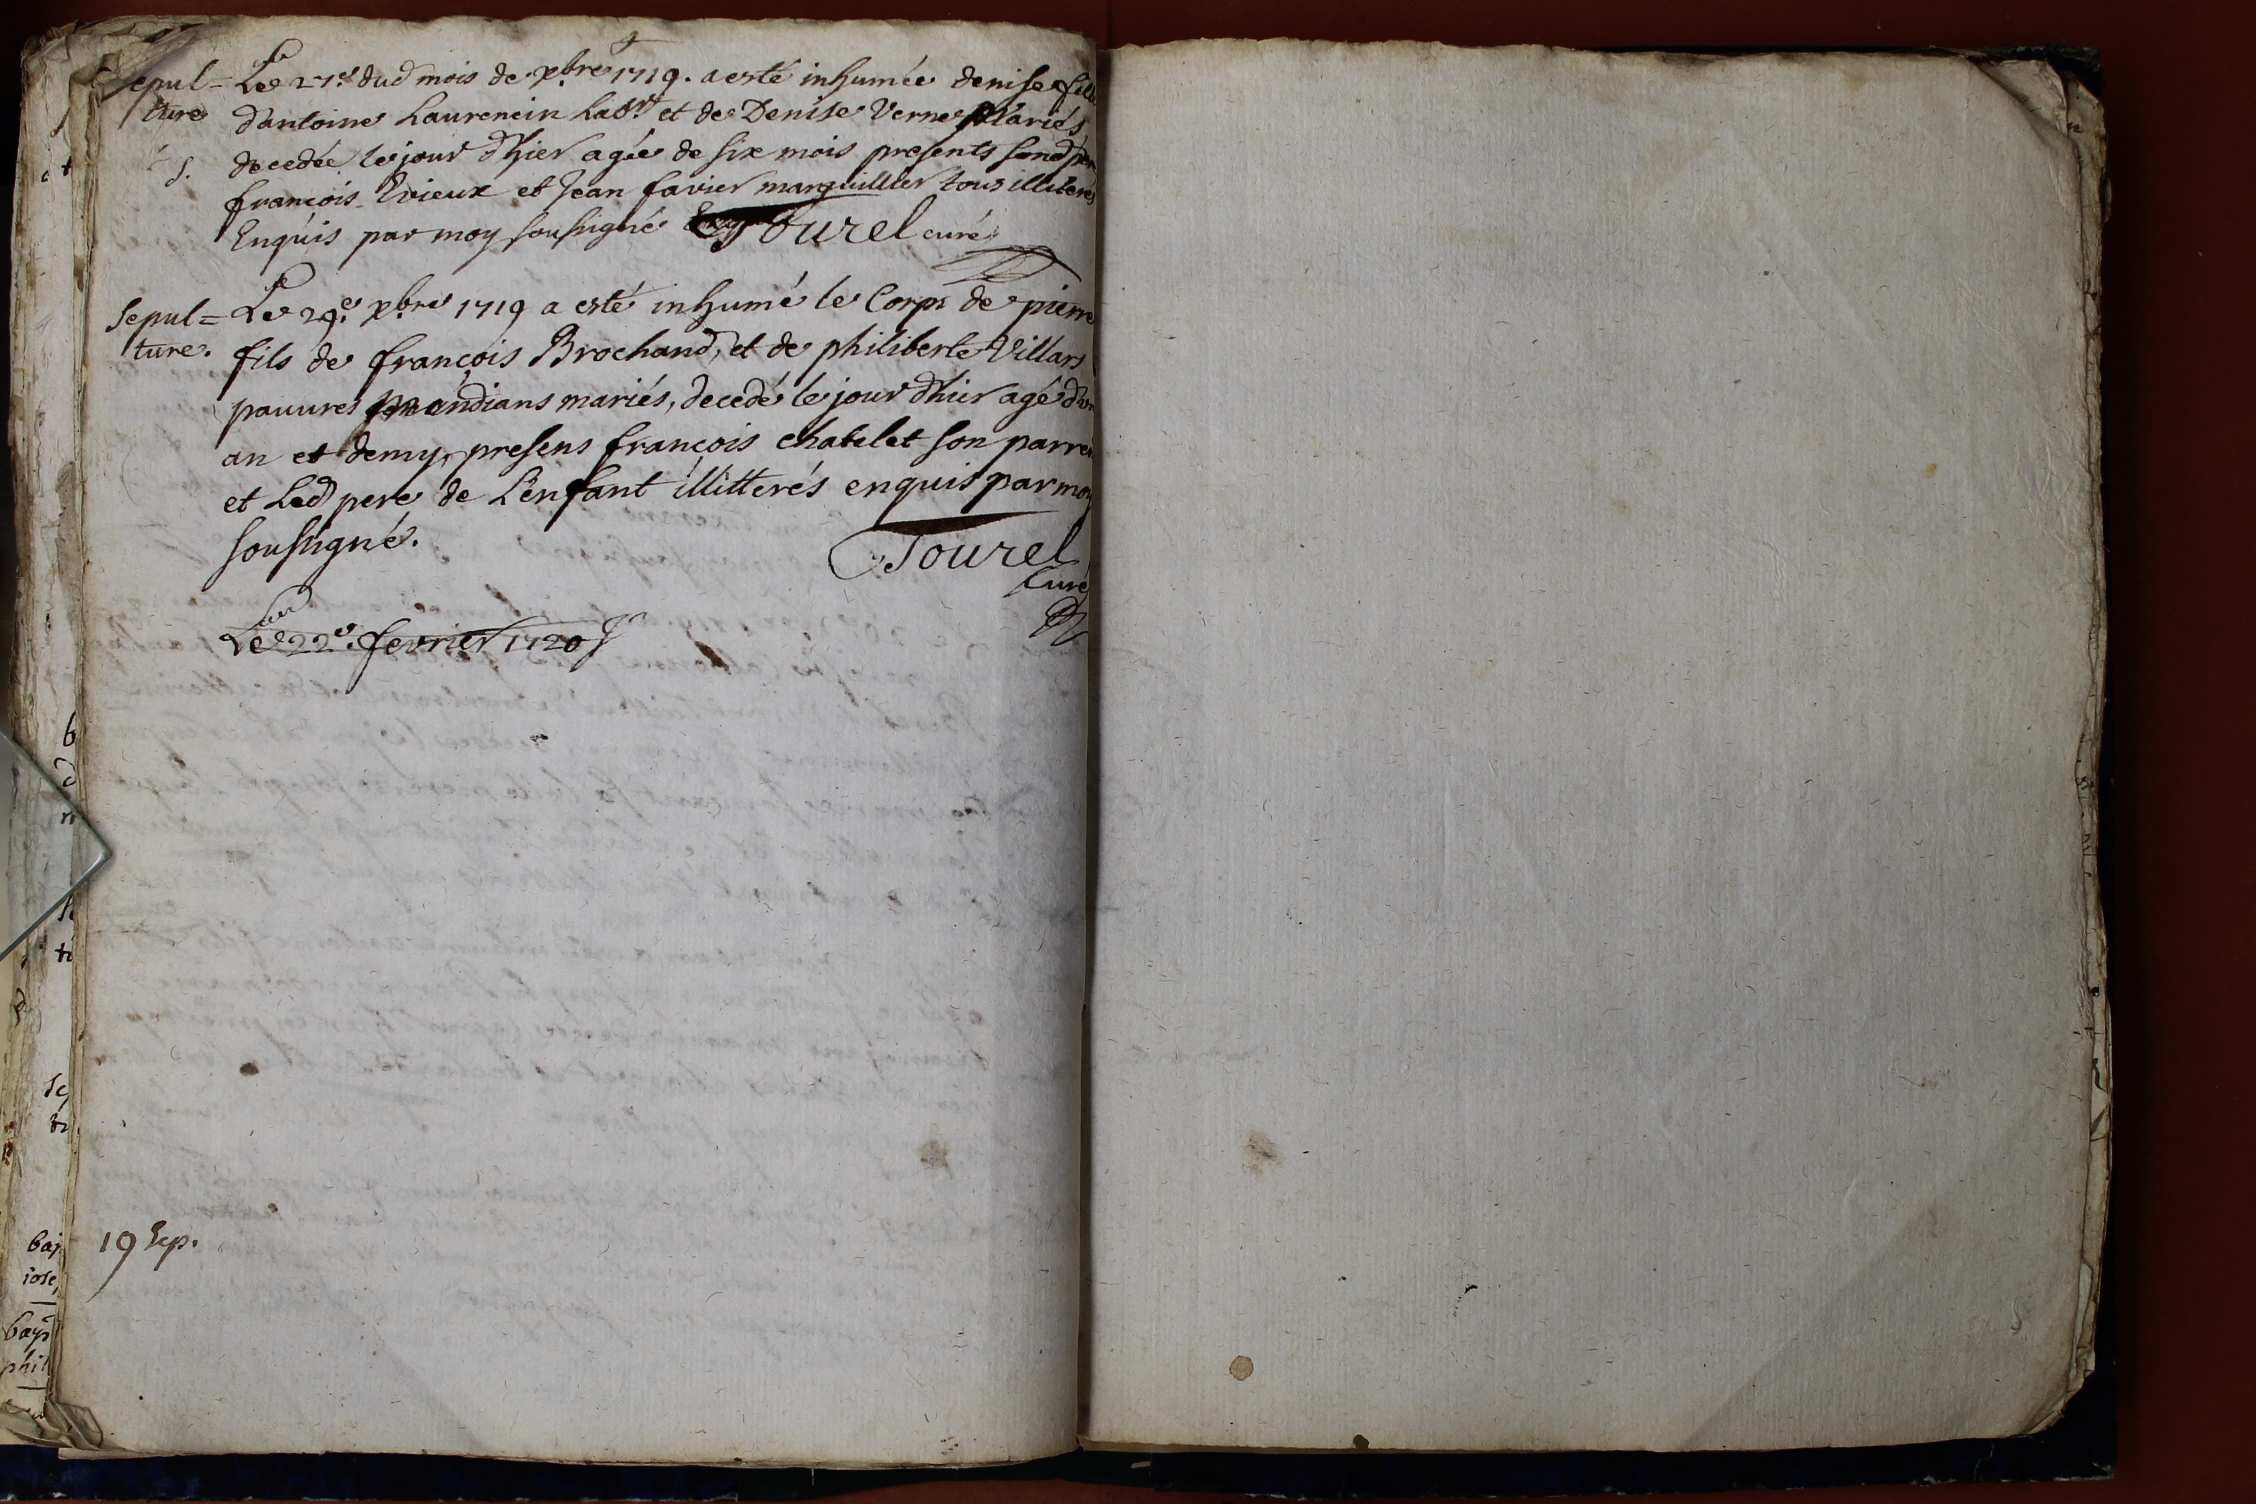 Sepul= Le 27e. dud mois de xbre 1719. a esté inhumée denise fille
ture d'antoine Laurencin Labr. et de Denise Verne Mariés
S. decedée le jour d'hier agée de six mois presents sond pere
françois Evieux et Jean favier marguillier tous illiterés
Enquis par moy soussigné Tourel curé
Sepul= Le 29e. xbre 1719 a esté inhumé le Corps de pierre
ture. fils de françois Brochand, et de philiberte Villars
pauvres mandians mariés, decedé le jour d'hier agé d'un
an et demy, presens françois chatelet son parrein
et Led pere de L'enfant illitterés enquis par moy
soussigné.
Tourel
Curé
Le 22e. fevrier 1720
19 Sep.
b
d
n
ti
bap
iose
bap
phil